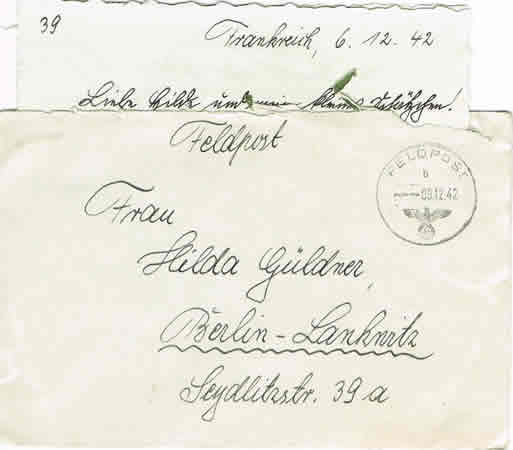 39
Frankreich, 6. 12. 42
Liebe Hilde und mein kleines Schätzchen!
Feldpost
FELDPOST
b
09.12.42
Frau
Hilda Güldner,
Berlin-Lankwitz
Seydlitzstr. 39 a